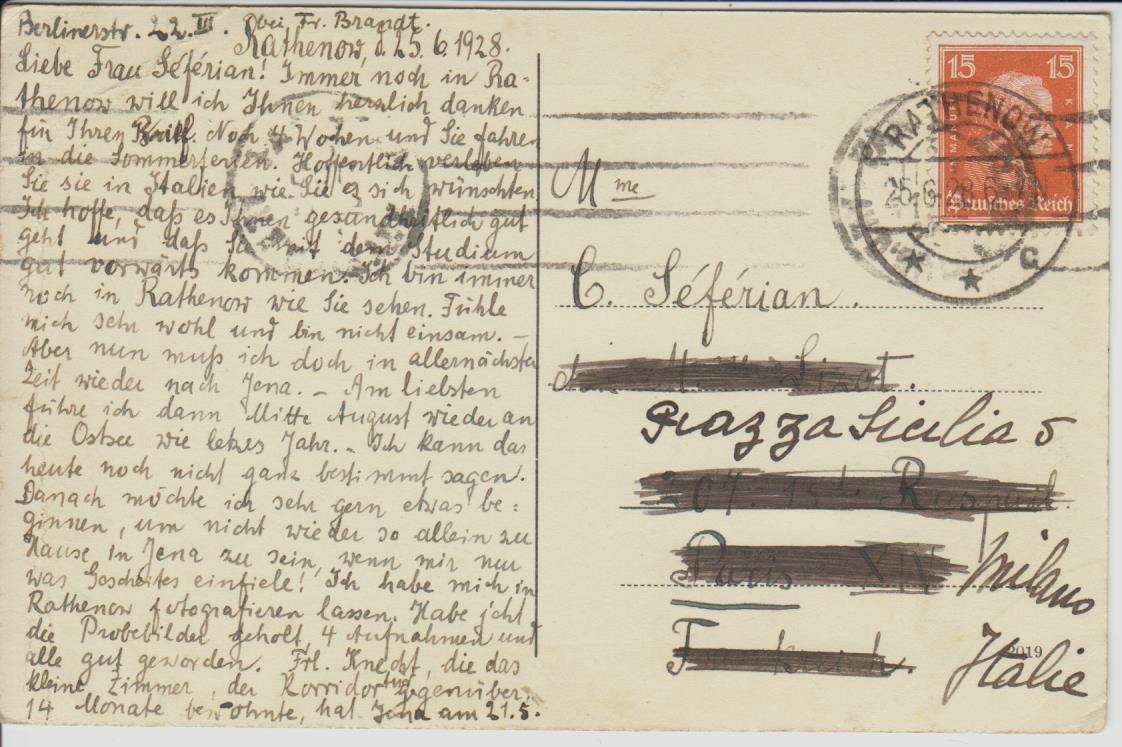 Berlinerstr. 22. III. bei Fr. Brandt.
Rathenow, d. 25.6.1928.
Liebe Frau Séférian! Immer noch in Ra-
thenow will ich Ihnen herzlich danken
für Ihren Brief. Noch 4 Wochen und Sie fahren
in die Sommerferien. Hoffentlich verleben
Sie sie in Italien wie Sie es sich wünschten
Ich hoffe, daß es Ihnen gesundheitlich gut
geht und daß Sie mit dem Studium
gut vorwärts kommen. Ich bin immer
noch in Rathenow wie Sie sehen. Fühle
mich sehr wohl und bin nicht einsam. –
Aber nun muß ich doch in allernächster
Zeit wieder nach Jena. – Am liebsten
führe ich dann Mitte August wieder an
die Ostsee wie letzes Jahr. – Ich kann das
heute noch nicht ganz bestimmt sagen.
Danach möchte ich sehr gern etwas be=
ginnen, um nicht wieder so allein zu
Hause, in Jena zu sein, wenn mir nur
was Gescheites einfiele! Ich habe mich in
Rathenow fotografieren lassen. Habe jetzt
die Probebilder geholt, 4 Aufnahmen und
alle gut geworden. Frl. Knecht, die das
kleine Zimmer, der Korridortür gegenüber
14 Monate bewohnte, hat Jena am 21.5.
15 15
Deutsches Reich
RATHENOW
25.6.28.6-7
C
Mme
C. Séférian.
Piazza Sicilia 5
Paris XIV
Milano
Italie
2019